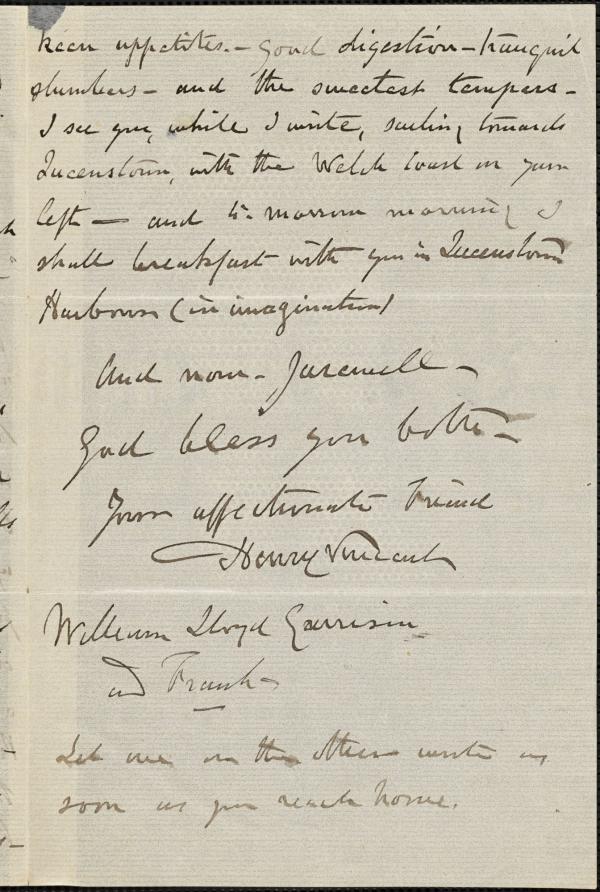 keen appetites. – good digestion – tranquil
slumbers – and the sweetest tempers –
I see you, while I write, sailing towards
Queenstown, with the Welch Coast on your
left — and to-morrow morning I
shall breakfast with you in Queenstown
Harbour (in imagination)
And now – farewell –
God bless you both –
Your affectionate Friend
Henry Vincent
William Lloyd Garrison
and Frank –
Let one or the other write as
soon as you reach home.